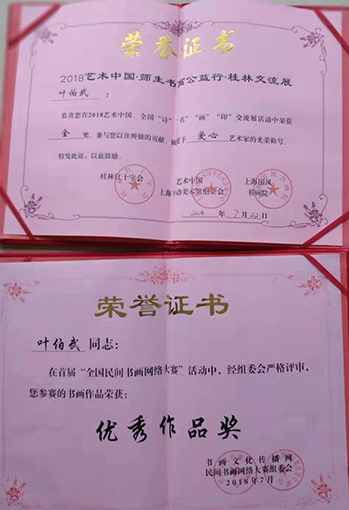 荣誉证书
2018艺术中国·师生书画公益行·桂林交流展
叶伯武：
恭喜您在2018艺术中国、全国“诗”·“书”“画”“印”交流展活动中荣获
金 奖，兼与您以往所做的贡献，授予 爱心 艺术家的光荣称号。
特发此证，以兹鼓励。
桂林红十字会 艺术中国 上海国风
上海行动美术馆组委会 书画院
2018 年 7 月 22 日
荣誉证书
叶伯武 同志：
在首届“全国民间书画网络大赛”活动中，经组委会严格评审，
您参赛的书画作品荣获：
优秀作品奖
书画文化传播网
民间书画网络大赛组委会
2018年7月